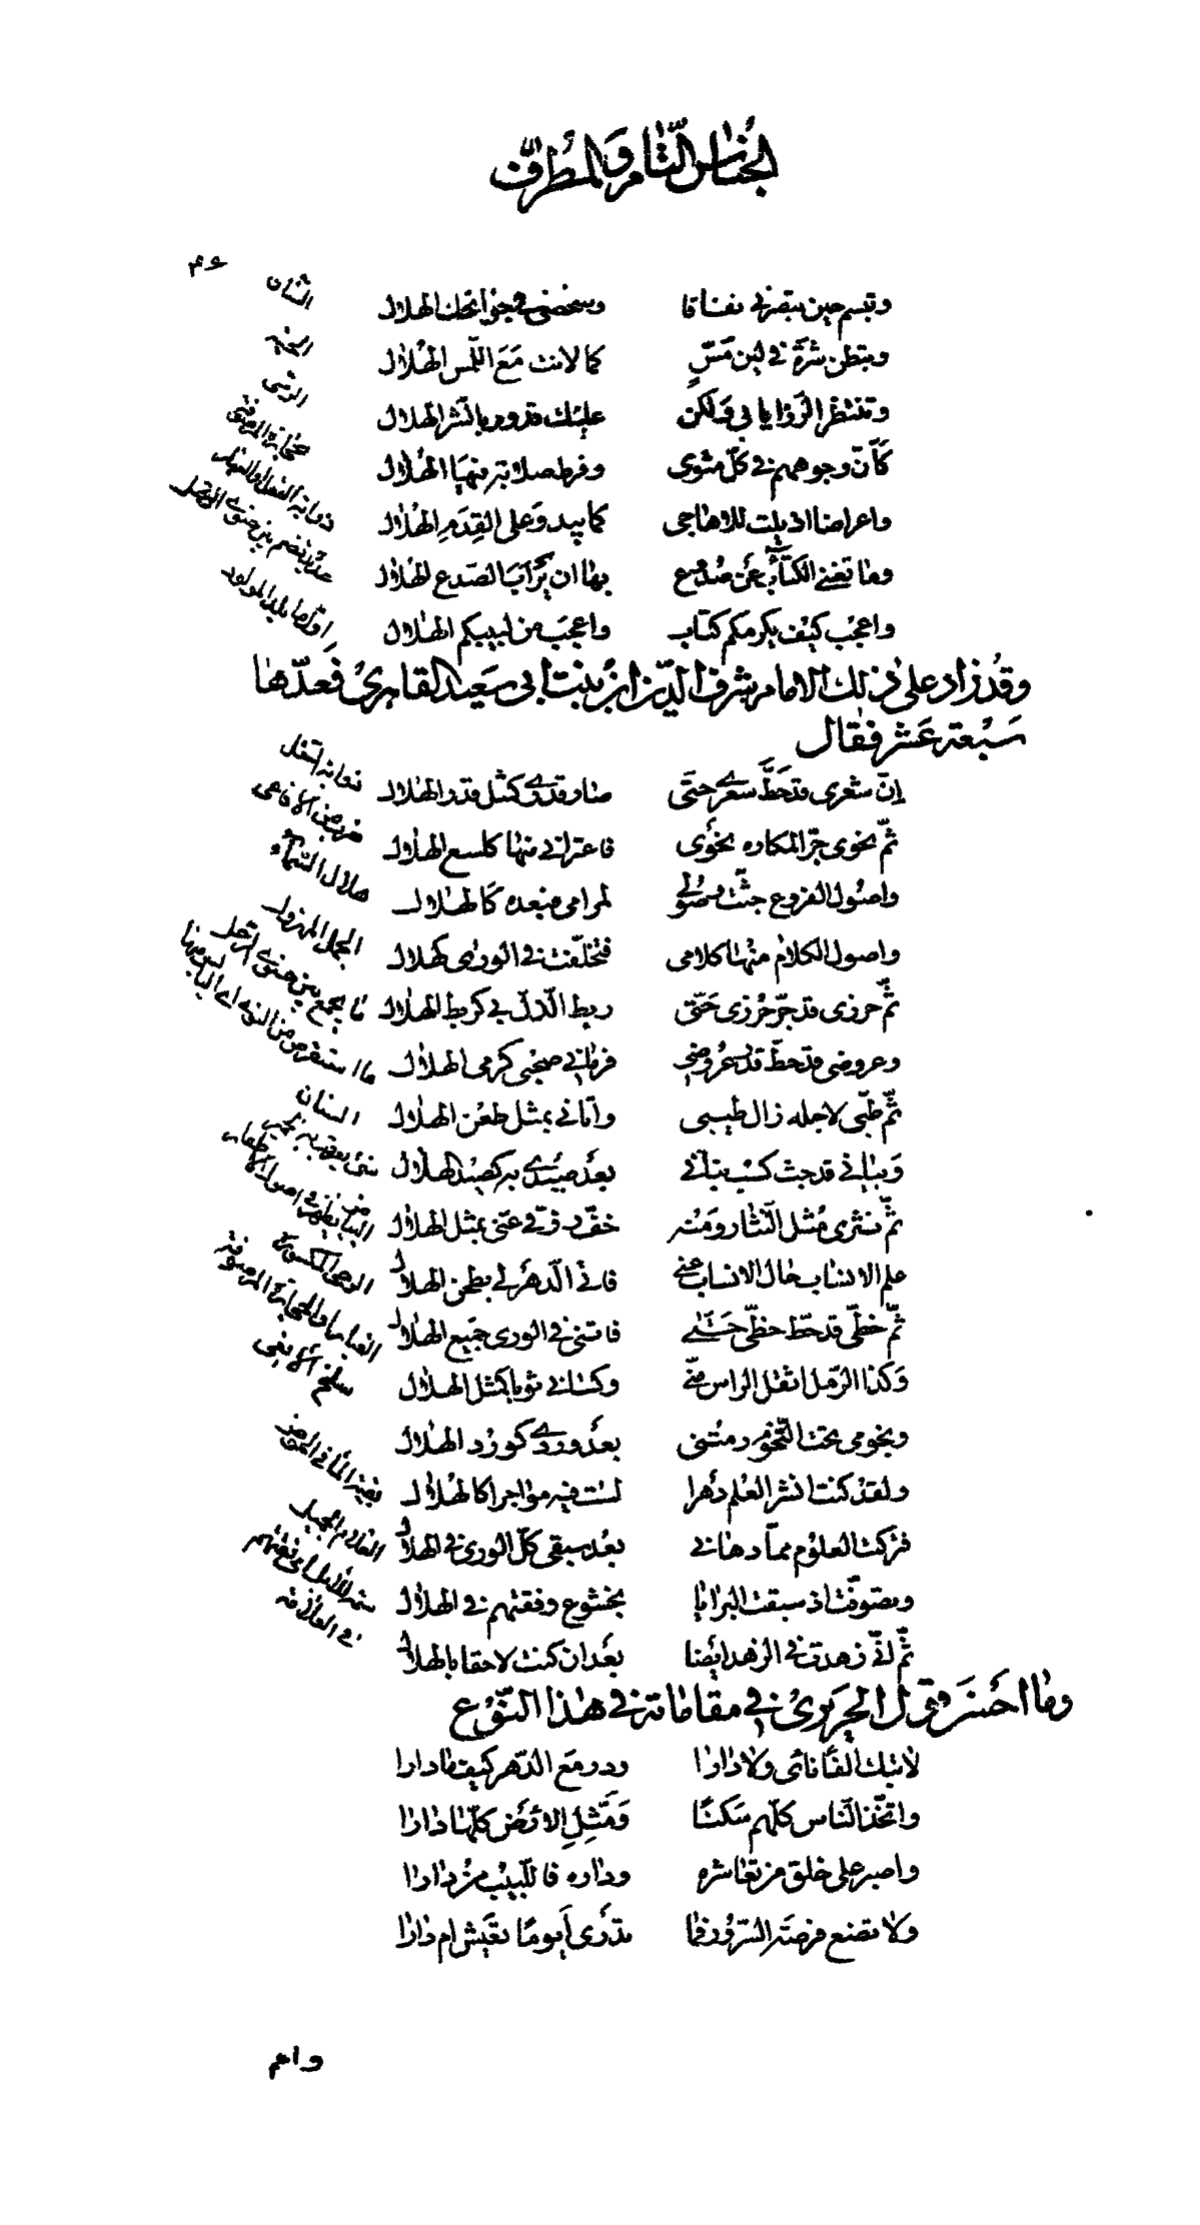 الجناس التام والمطرف
وتبسم حين تبصرني نفاقا وشخصي في جوانحك الهلال
السنان
وتبطن شرة في لين مس كما لانت مع اللمس الهلال
الحية
وتنتظر الرزايا بي ولكن عليك تدور بالشر الهلال
الرحى
كأن وجوههم في كل مثوى وفرط صلابة فيها الهلال
حجارة المرصوفة
واعراضا اذيلت للاهاجي كما يبدو على القدم الهلال
ذوابة النعل
وما تغني الكتائب عن صديع بها ان يرأب الصدع الهلال
واعجب كيف يكرمكم كتاب واعجب من لبيبكم الهلال
وقد زاد على ذلك الامام شرف الدين ابن بنت ابي سعيد القاهري فعدها
سبعة عشر فقال
إن شعري قد حط سعري حتى صار قدري كمثل قدر الهلال
ثم نحوي جر المكاره نحوي فاعتراني منها كلسع الهلال
ضرب من الافاعي
واصول الفروع جثت وصولي لمرامي مبعده كالهلال
هلال السماء
واصول الكلام منها كلامي فتخلفت في الورى كهلال
الجمل المهزول
ثم حرزي قد جر حرزي حتى ربط الذل بي كربط الهلال
ما يجمع بين حنوي الرحل
وعروضي قد حط قدر عروضي فرماني صحبي كرمي الهلال
ثم طبي لاجله زال طيبي وأتاني بمثل طعن الهلال
السنان
وبياني قد جث كسب بناني بعد صيدي به كصيد الهلال
ثم نثري مثل النثار ومنه خف قدري عني بمثل الهلال
علم الانساب حال الانساب عني فاني الدهر لي بطحن الهلال
الرحى المكسورة
ثم خطي قد حط حظي حتى فاتني في الورى جميع الهلال
وكذا الرمل اثقل الراس مني وكساني ثوبا كمثل الهلال
سلخ الافعى
ونجومي تحت التخوم رمتني بعد وردي كورد الهلال
بقية الماء في الحوض
ولقد كنت انشر العلم دهرا لست فيه مواجرا كالهلال
الغلام الجميل
فتركت العلوم مما دهاني بعد سبقي كل الورى في الهلال
وتصوفت اذ سبقت البرايا بخشوع وفقتهم في الهلال
ثم اني زهدت في الزهد ايضا بعد ان كنت لاحقا بالهلال
وما احسن قول الحريري في مقاماته في هذا النوع
لا تبك الفا نائى ولا دارا ودر مع الدهر كيفما دارا
واتخذ الناس كلهم سكنا ومثل الارض كلها دارا
واصبر على خلق من تعاشره وداره فاللبيب من دارا
ولا تضع فرصة السرور فما تدري أيوما تعيش ام دارا